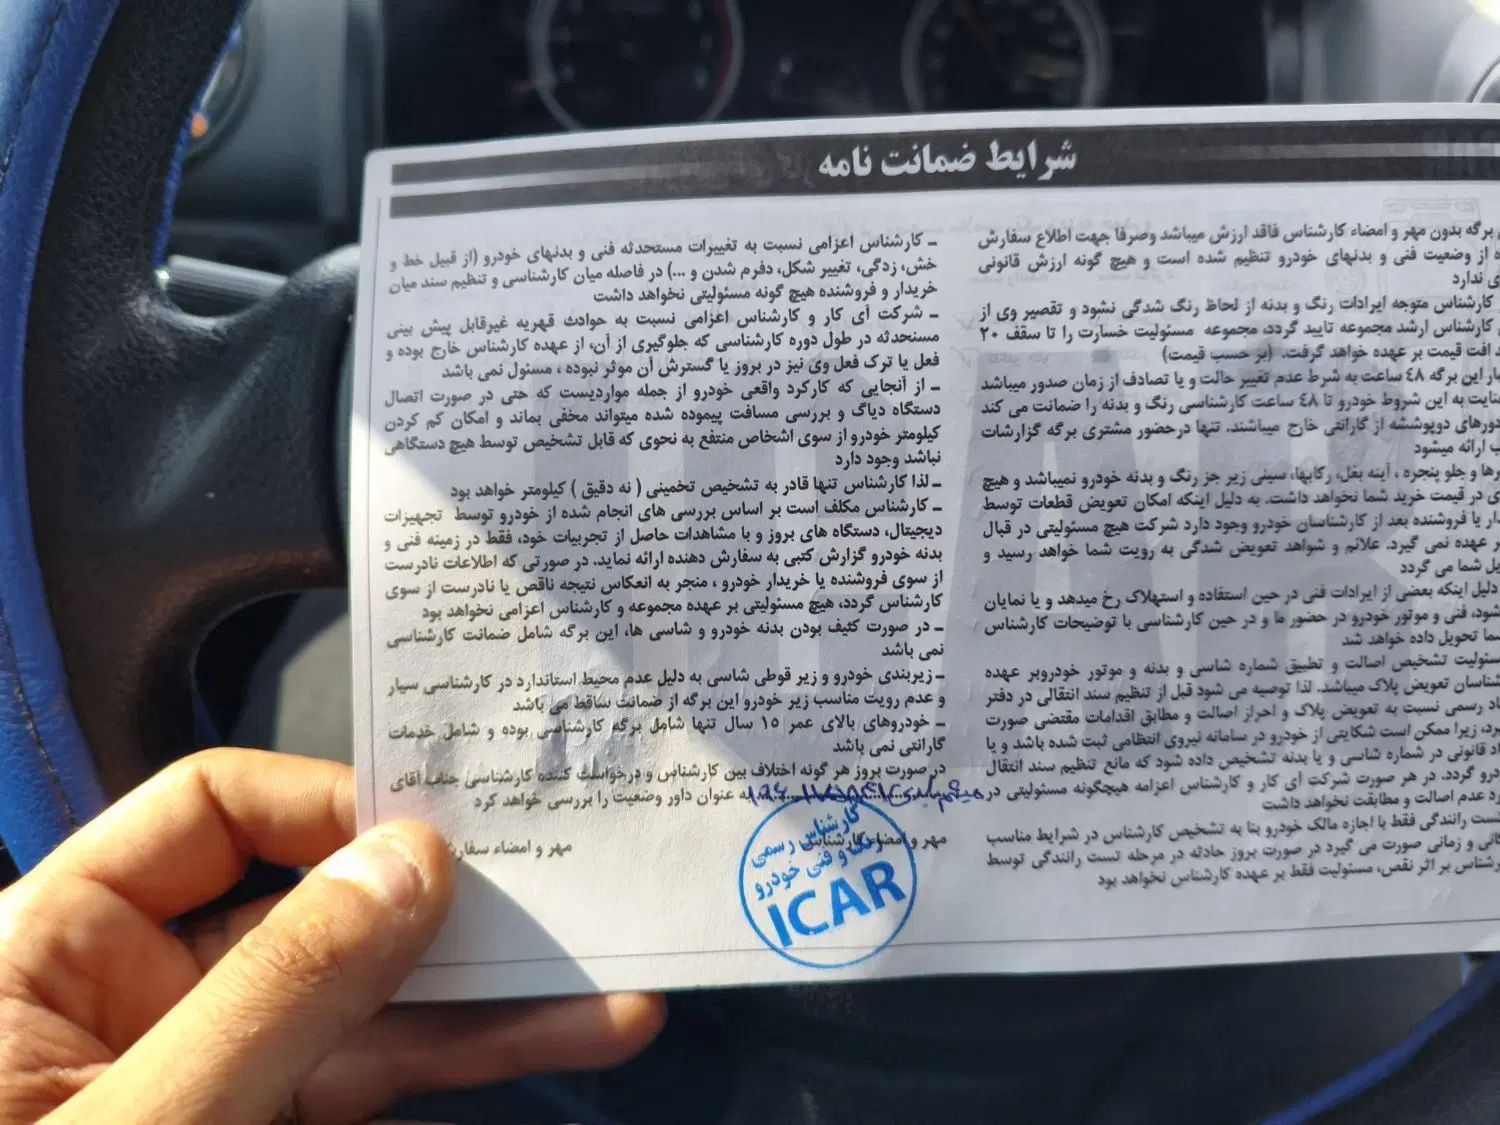 شرایط ضمانت نامه
برگه بدون مهر و امضاء کارشناس فاقد ارزش میباشد وصرفا جهت اطلاع سفارش
از وضعیت فنی و بدنهای خودرو تنظیم شده است و هیچ گونه ارزش قانونی
ندارد
کارشناس متوجه ایرادات رنگ و بدنه از لحاظ رنگ شدگی نشود و تقصیر وی از
کارشناس ارشد مجموعه تایید گردد، مجموعه مسئولیت خسارت را تا سقف ۲۰
افت قیمت بر عهده خواهد گرفت. (بر حسب قیمت)
این برگه ٤٨ ساعت به شرط عدم تغییر حالت و یا تصادف از زمان صدور میباشد
به این شروط خودرو تا ٤٨ ساعت کارشناسی رنگ و بدنه را ضمانت می کند
دوپوششه از گارانتی خارج میباشند. تنها درحضور مشتری برگه گزارشات
ارائه میشود
و جلو پنجره ، آینه بغل، رکابها، سینی زیر جز رنگ و بدنه خودرو نمیباشد و هیچ
در قیمت خرید شما نخواهد داشت. به دلیل اینکه امکان تعویض قطعات توسط
یا فروشنده بعد از کارشناسان خودرو وجود دارد شرکت هیچ مسئولیتی در قبال
عهده نمی گیرد. علائم و شواهد تعویض شدگی به رویت شما خواهد رسید و
شما می گردد
دلیل اینکه بعضی از ایرادات فنی در حین استفاده و استهلاک رخ میدهد و یا نمایان
فنی و موتور خودرو در حضور ما و در حین کارشناسی با توضیحات کارشناس
تحویل داده خواهد شد
تشخیص اصالت و تطبیق شماره شاسی و بدنه و موتور خودروبر عهده
تعویض پلاک میباشد. لذا توصیه می شود قبل از تنظیم سند انتقالی در دفتر
رسمی نسبت به تعویض پلاک و احراز اصالت و مطابق اقدامات مقتضی صورت
زیرا ممکن است شکایتی از خودرو در سامانه نیروی انتظامی ثبت شده باشد و یا
قانونی در شماره شاسی و یا بدنه تشخیص داده شود که مانع تنظیم سند انتقال
گردد. در هر صورت شرکت آی کار و کارشناس اعزامه هیچگونه مسئولیتی در
عدم اصالت و مطابقت نخواهد داشت
رانندگی فقط با اجازه مالک خودرو بنا به تشخیص کارشناس در شرایط مناسب
و زمانی صورت می گیرد در صورت بروز حادثه در مرحله تست رانندگی توسط
بر اثر نقص، مسئولیت فقط بر عهده کارشناس نخواهد بود
ـ کارشناس اعزامی نسبت به تغییرات مستحدثه فنی و بدنهای خودرو (از قبیل خط و
خش، زدگی، تغییر شکل، دفرم شدن و ...) در فاصله میان کارشناسی و تنظیم سند میان
خریدار و فروشنده هیچ گونه مسئولیتی نخواهد داشت
ـ شرکت آی کار و کارشناس اعزامی نسبت به حوادث قهریه غیرقابل پیش بینی
مستحدثه در طول دوره کارشناسی که جلوگیری از آن، از عهده کارشناس خارج بوده و
فعل یا ترک فعل وی نیز در بروز یا گسترش آن موثر نبوده ، مسئول نمی باشد
ـ از آنجایی که کارکرد واقعی خودرو از جمله مواردیست که حتی در صورت اتصال
دستگاه دیاگ و بررسی مسافت پیموده شده میتواند مخفی بماند و امکان کم کردن
کیلومتر خودرو از سوی اشخاص منتفع به نحوی که قابل تشخیص توسط هیچ دستگاهی
نباشد وجود دارد
ـ لذا کارشناس تنها قادر به تشخیص تخمینی ( نه دقیق ) کیلومتر خواهد بود
ـ کارشناس مکلف است بر اساس بررسی های انجام شده از خودرو توسط تجهیزات
دیجیتال، دستگاه های بروز و با مشاهدات حاصل از تجربیات خود، فقط در زمینه فنی و
بدنه خودرو گزارش کتبی به سفارش دهنده ارائه نماید. در صورتی که اطلاعات نادرست
از سوی فروشنده یا خریدار خودرو ، منجر به انعکاس نتیجه ناقص یا نادرست از سوی
کارشناس گردد، هیچ مسئولیتی بر عهده مجموعه و کارشناس اعزامی نخواهد بود
ـ در صورت کثیف بودن بدنه خودرو و شاسی ها، این برگه شامل ضمانت کارشناسی
نمی باشد
ـ زیربندی خودرو و زیر قوطی شاسی به دلیل عدم محیط استاندارد در کارشناسی سیار
و عدم رویت مناسب زیر خودرو این برگه از ضمانت ساقط می باشد
ـ خودروهای بالای عمر ۱۵ سال تنها شامل برگه کارشناسی بوده و شامل خدمات
گارانتی نمی باشد
در صورت بروز هر گونه اختلاف بین کارشناس و درخواست کننده کارشناسی جناب آقای
به عنوان داور وضعیت را بررسی خواهد کرد
مهر و امضاء کارشناس
مهر و امضاء سفارش
کارشناس رسمی
رنگ و فنی خودرو
ICAR